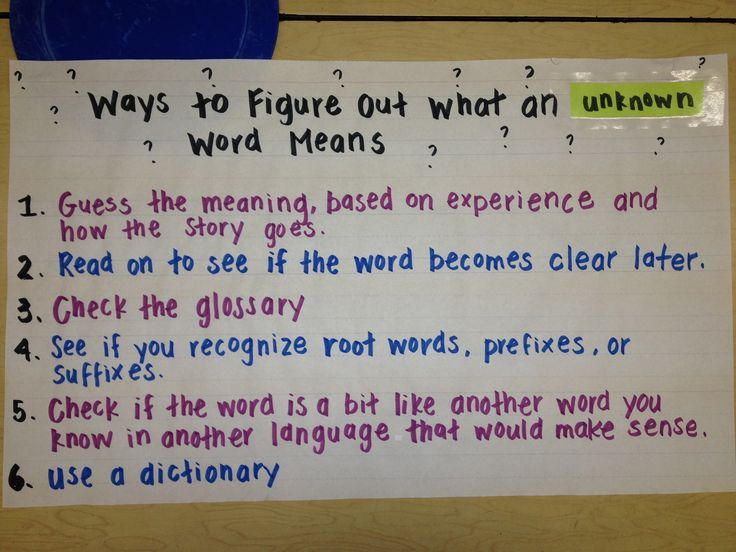 ? ? ? ? ? ? ?
? Ways to Figure Out what an unknown
? Word Means ? ? ? ?
1. Guess the meaning, based on experience and
how the story goes.
2. Read on to see if the word becomes clear later.
3. Check the glossary
4. See if you recognize root words, prefixes, or
suffixes.
5. Check if the word is a bit like another word you
know in another language that would make sense.
6. use a dictionary